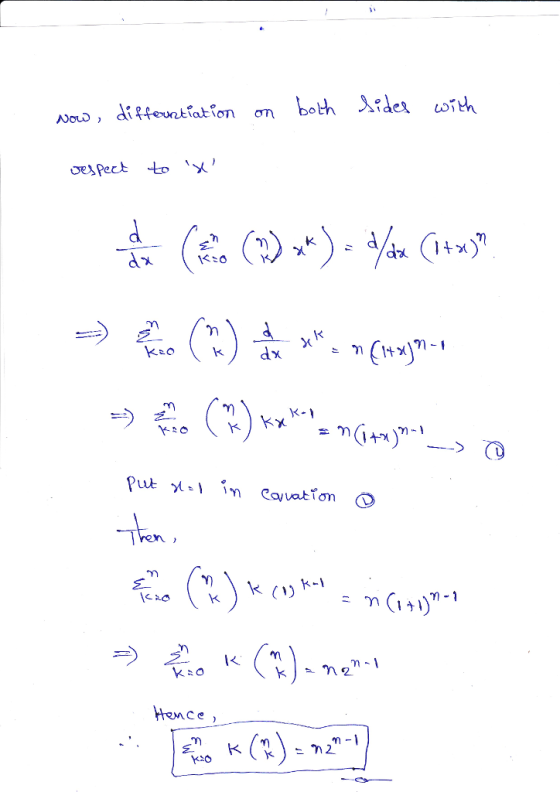 Now, differentiation on both sides with
respect to 'x'
d/dx (Σⁿₖ₌₀ (n k) xᵏ) = d/dx (1+x)ⁿ
⇒ Σⁿₖ₌₀ (n k) d/dx xᵏ = n(1+x)ⁿ⁻¹
⇒ Σⁿₖ₌₀ (n k) k xᵏ⁻¹ = n(1+x)ⁿ⁻¹ → ①
Put x=1 in equation ①
Then,
Σⁿₖ₌₀ (n k) k (1)ᵏ⁻¹ = n(1+1)ⁿ⁻¹
⇒ Σⁿₖ₌₀ k (n k) = n2ⁿ⁻¹
Hence,
∴ Σⁿₖ₌₀ k (n k) = n2ⁿ⁻¹